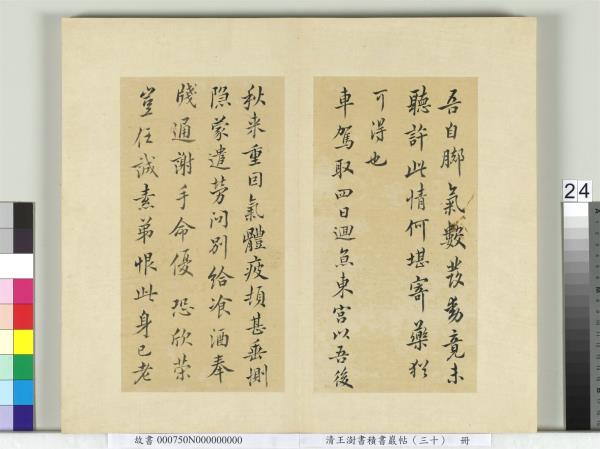 吾自脚氣數發動竟未
聽許此情何堪寄藥猶
可得也
車駕取四日迴魚東宮以吾後
秋来重因氣體疲頓甚垂惻
隐蒙遣勞问别给飡酒奉
牋通謝手命優恐欣荣
豈任誠素弟恨此身已老
24
故書 000750N000000000
清王澍書積書巖帖（三十） 冊